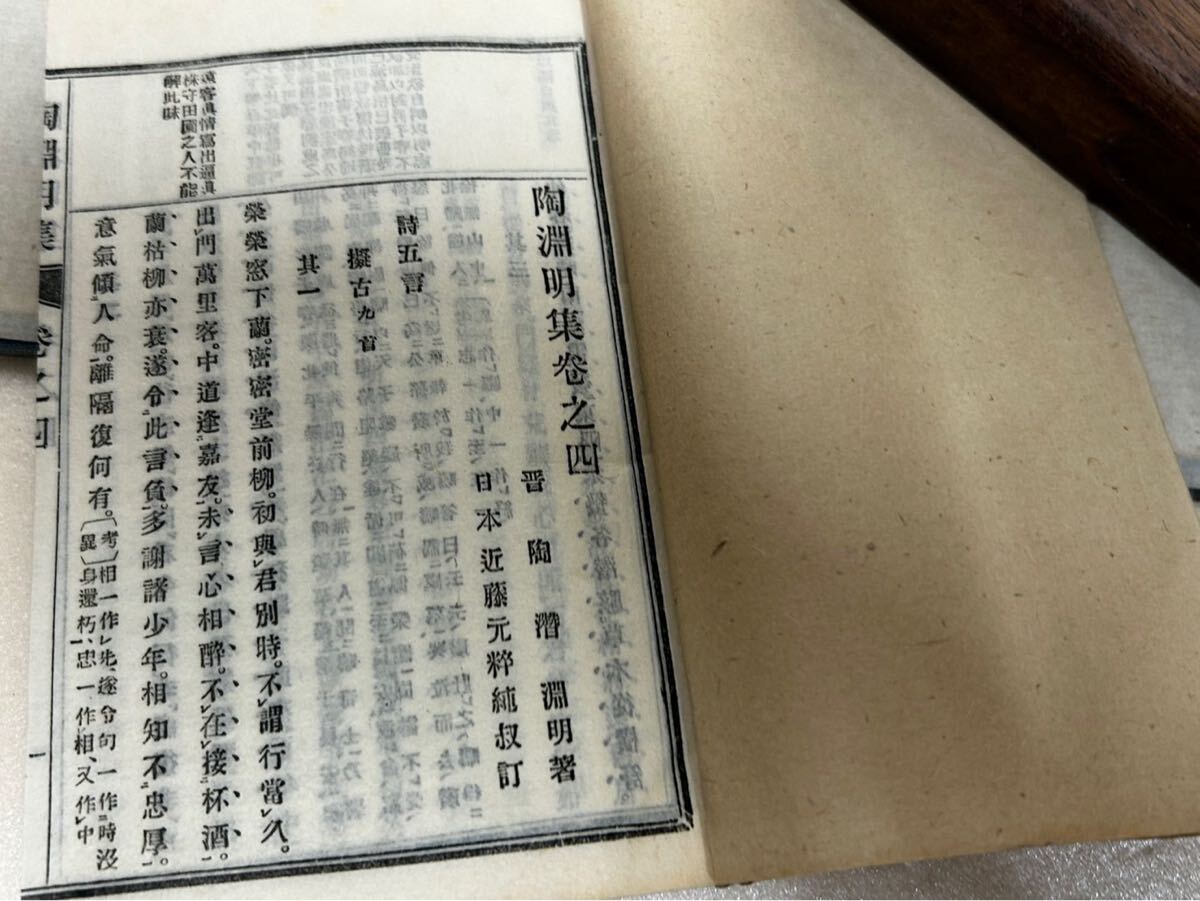 陶淵明集卷之四
晋 陶 潛 淵明著
日本 近藤元粹純叔訂
詩五言
擬古九首
其一
榮榮窓下蘭。密密堂前柳。初與君別時。不謂行當久。
出門萬里客。中道逢嘉友。未言心相醉。不在接杯酒。
蘭枯柳亦衰。遂令此言負。多謝諸少年。相知不忠厚。
意氣傾人命。離隔復何有。〔考異〕相一作先、遂令句一作時沒身還朽、忠一作相、又作中
遠客眞情寫出逼眞
株守田園之人不能
解此味
陶淵明集
卷之四
一